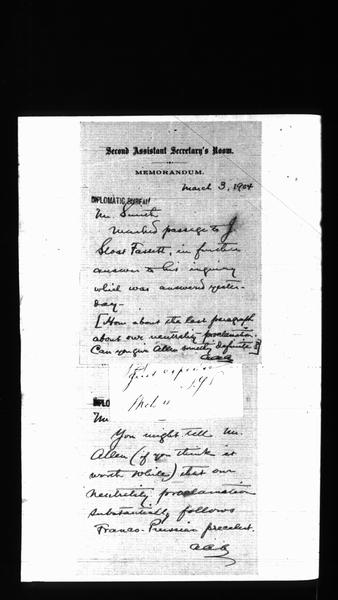 Second Assistant Secretary's Room.
MEMORANDUM.
March 3, 1904
DIPLOMATIC BUREAU
Mr. Smith
Marked passage to J
Sloat Fassett, in further
answer to his inquiry
which was answered yester-
day-
[How about the last paragraph
about our neutrality proclamation.
Can you give Allen something definite?]
AAA
Mch 11
DIPLO
Mr.
You might tell Mr.
Allen (if you think it
worth while) that our
neutrality proclamation
substantially follows
Franco-Prussian precedent.
AAA